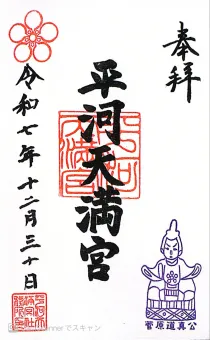 奉拝
平河天満宮
令和七年十二月三十日
菅原道真公
でスキャン